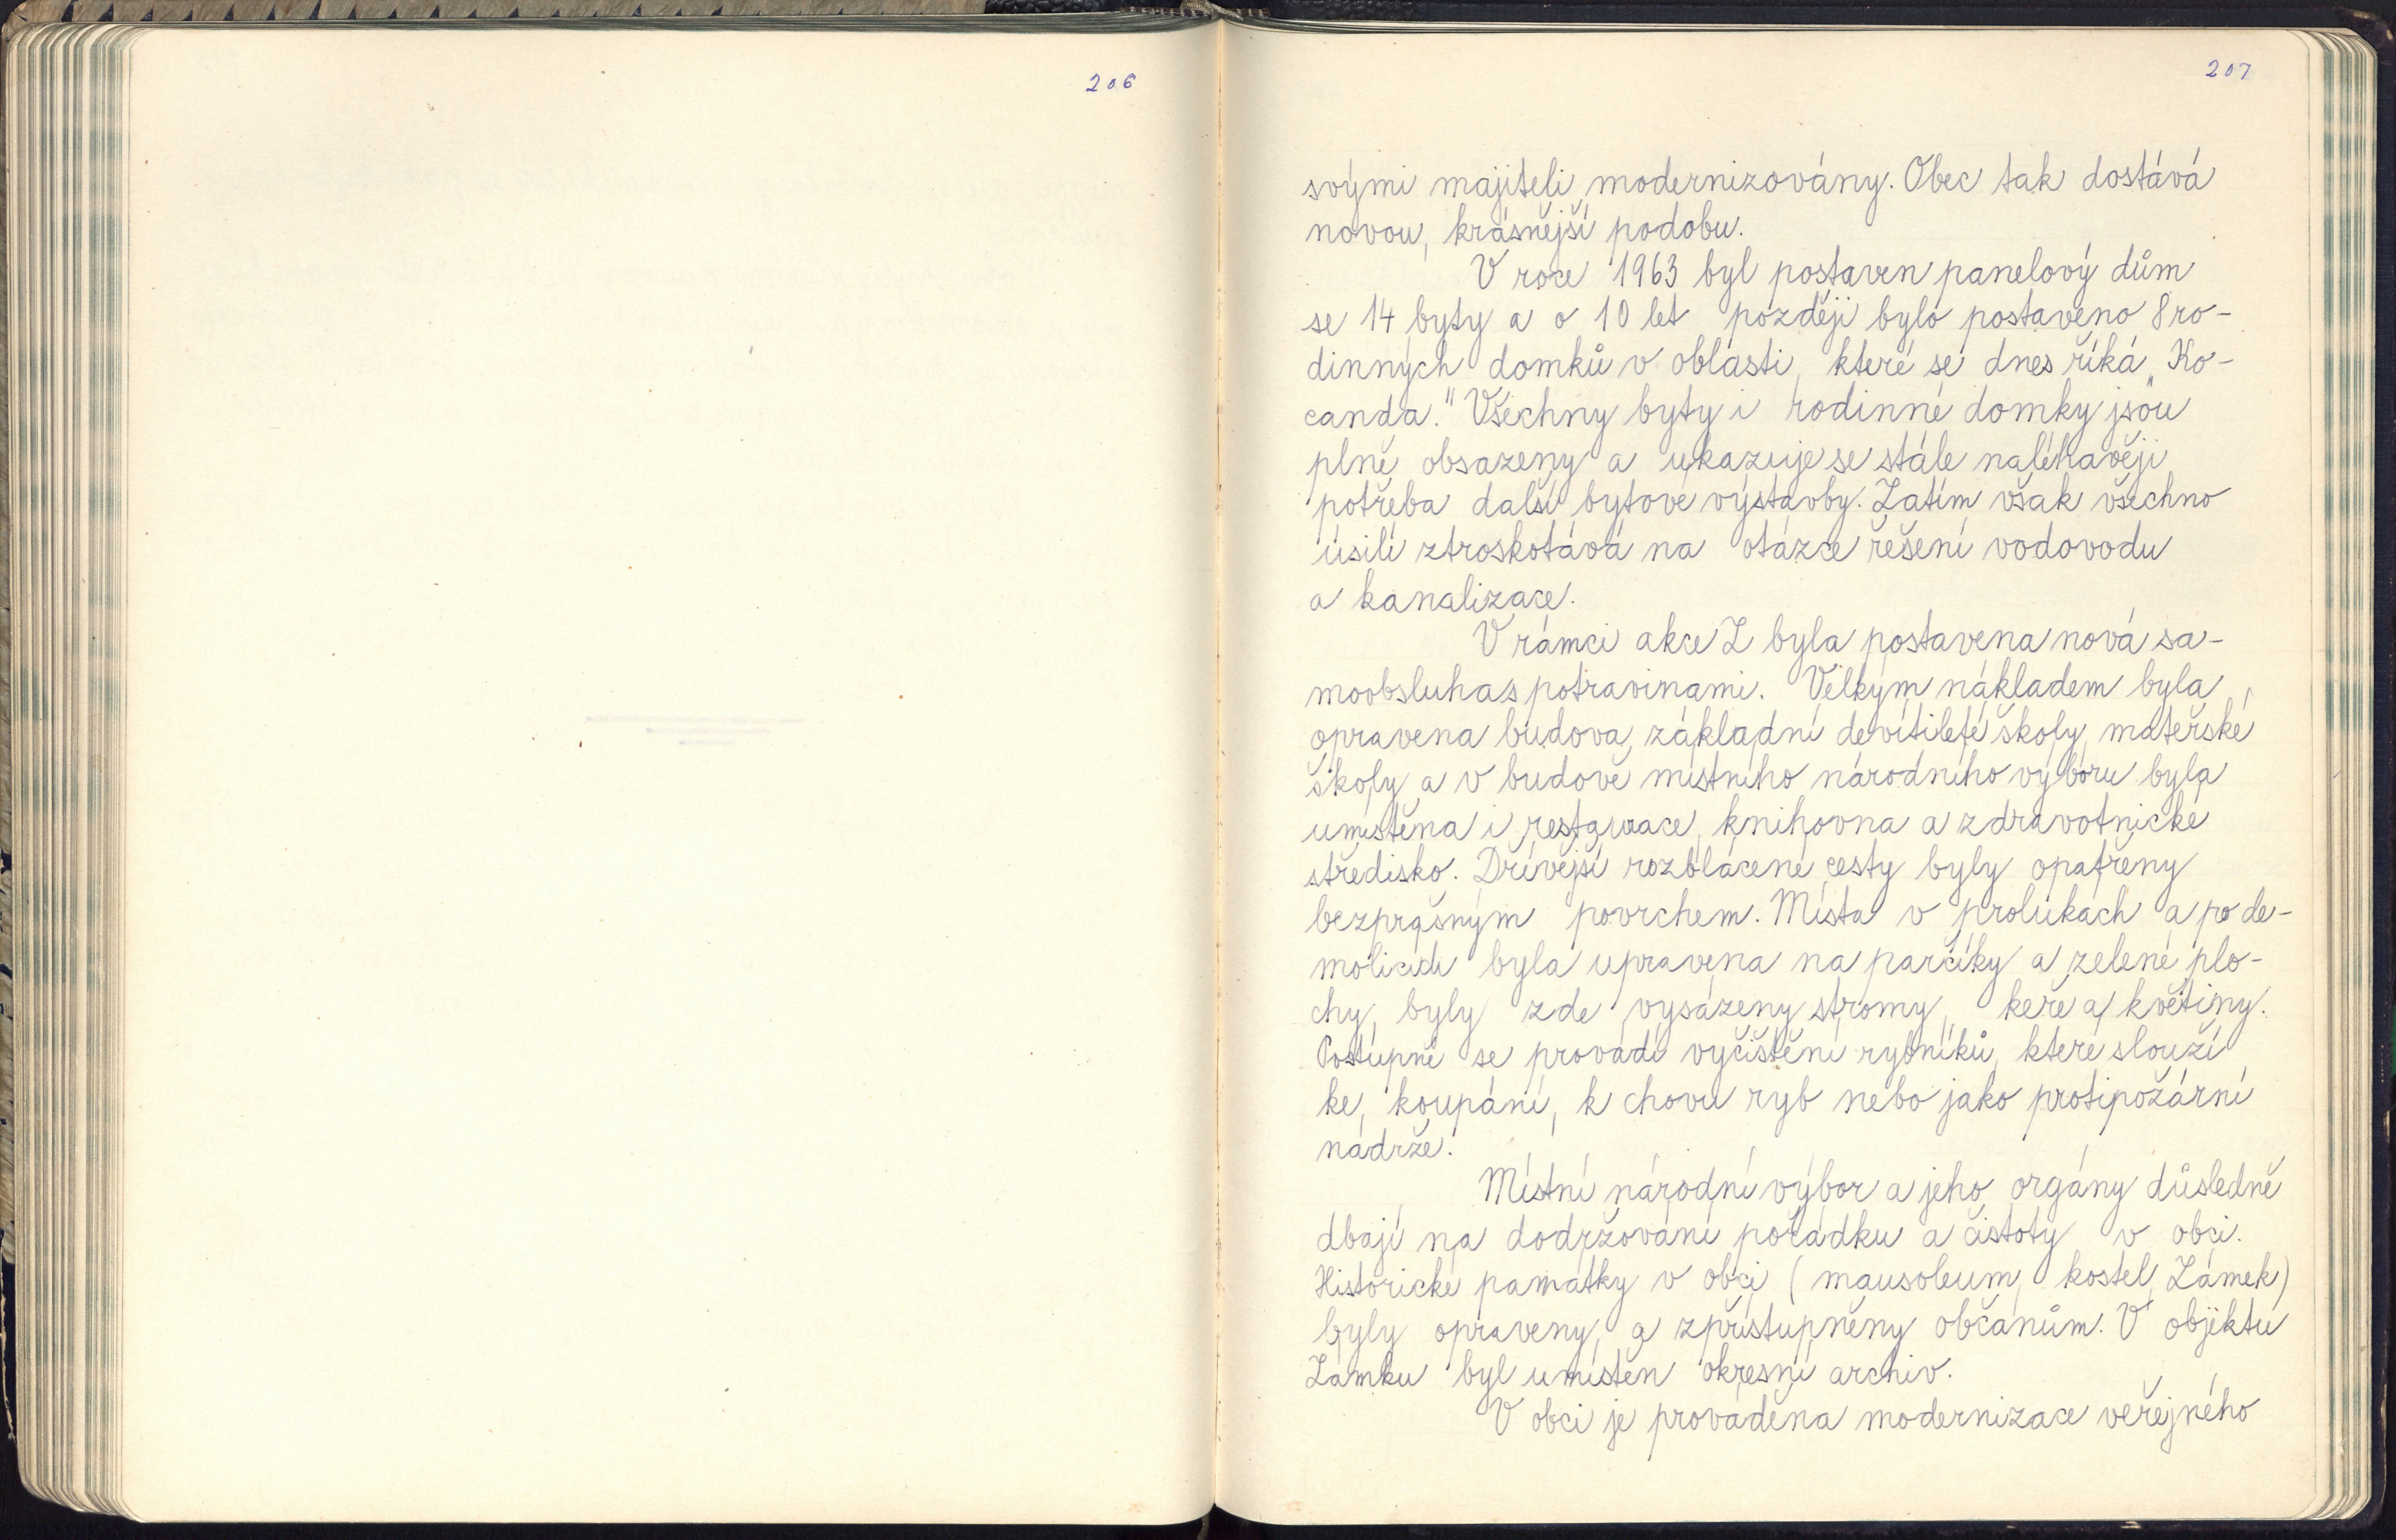 206
207
svými majiteli modernizovány. Obec tak dostává
novou, krásnější podobu.
V roce 1963 byl postaven panelový dům
se 14 byty a o 10 let později bylo postaveno 8 ro-
dinných domků v oblasti, které se dnes říká „Ko-
canda." Všechny byty i rodinné domky jsou
plně obsazeny a ukazuje se stále naléhavěji
potřeba další bytové výstavby. Zatím však všechno
úsilí ztroskotává na otázce řešení vodovodu
a kanalizace.
V rámci akce Z byla postavena nová sa-
moobsluha s potravinami. Velkým nákladem byla
opravena budova základní devítileté školy, mateřské
školy a v budově místního národního výboru byla
umístěna i restaurace, knihovna a zdravotnické
středisko. Dřívější rozblácené cesty byly opatřeny
bezprašným povrchem. Místa v prolukách a po de-
molicích byla upravena na parčíky a zelené plo-
chy, byly zde vysázeny stromy, keře a květiny.
Postupně se provádí vyčištění rybníků, které slouží
ke koupání, k chovu ryb nebo jako protipožární
nádrže.
Místní národní výbor a jeho orgány důsledně
dbají na dodržování pořádku a čistoty v obci.
Historické památky v obci (mausoleum, kostel, Zámek)
byly opraveny a zpřístupněny občanům. V objektu
Zámku byl umístěn okresní archiv.
V obci je prováděna modernizace veřejného